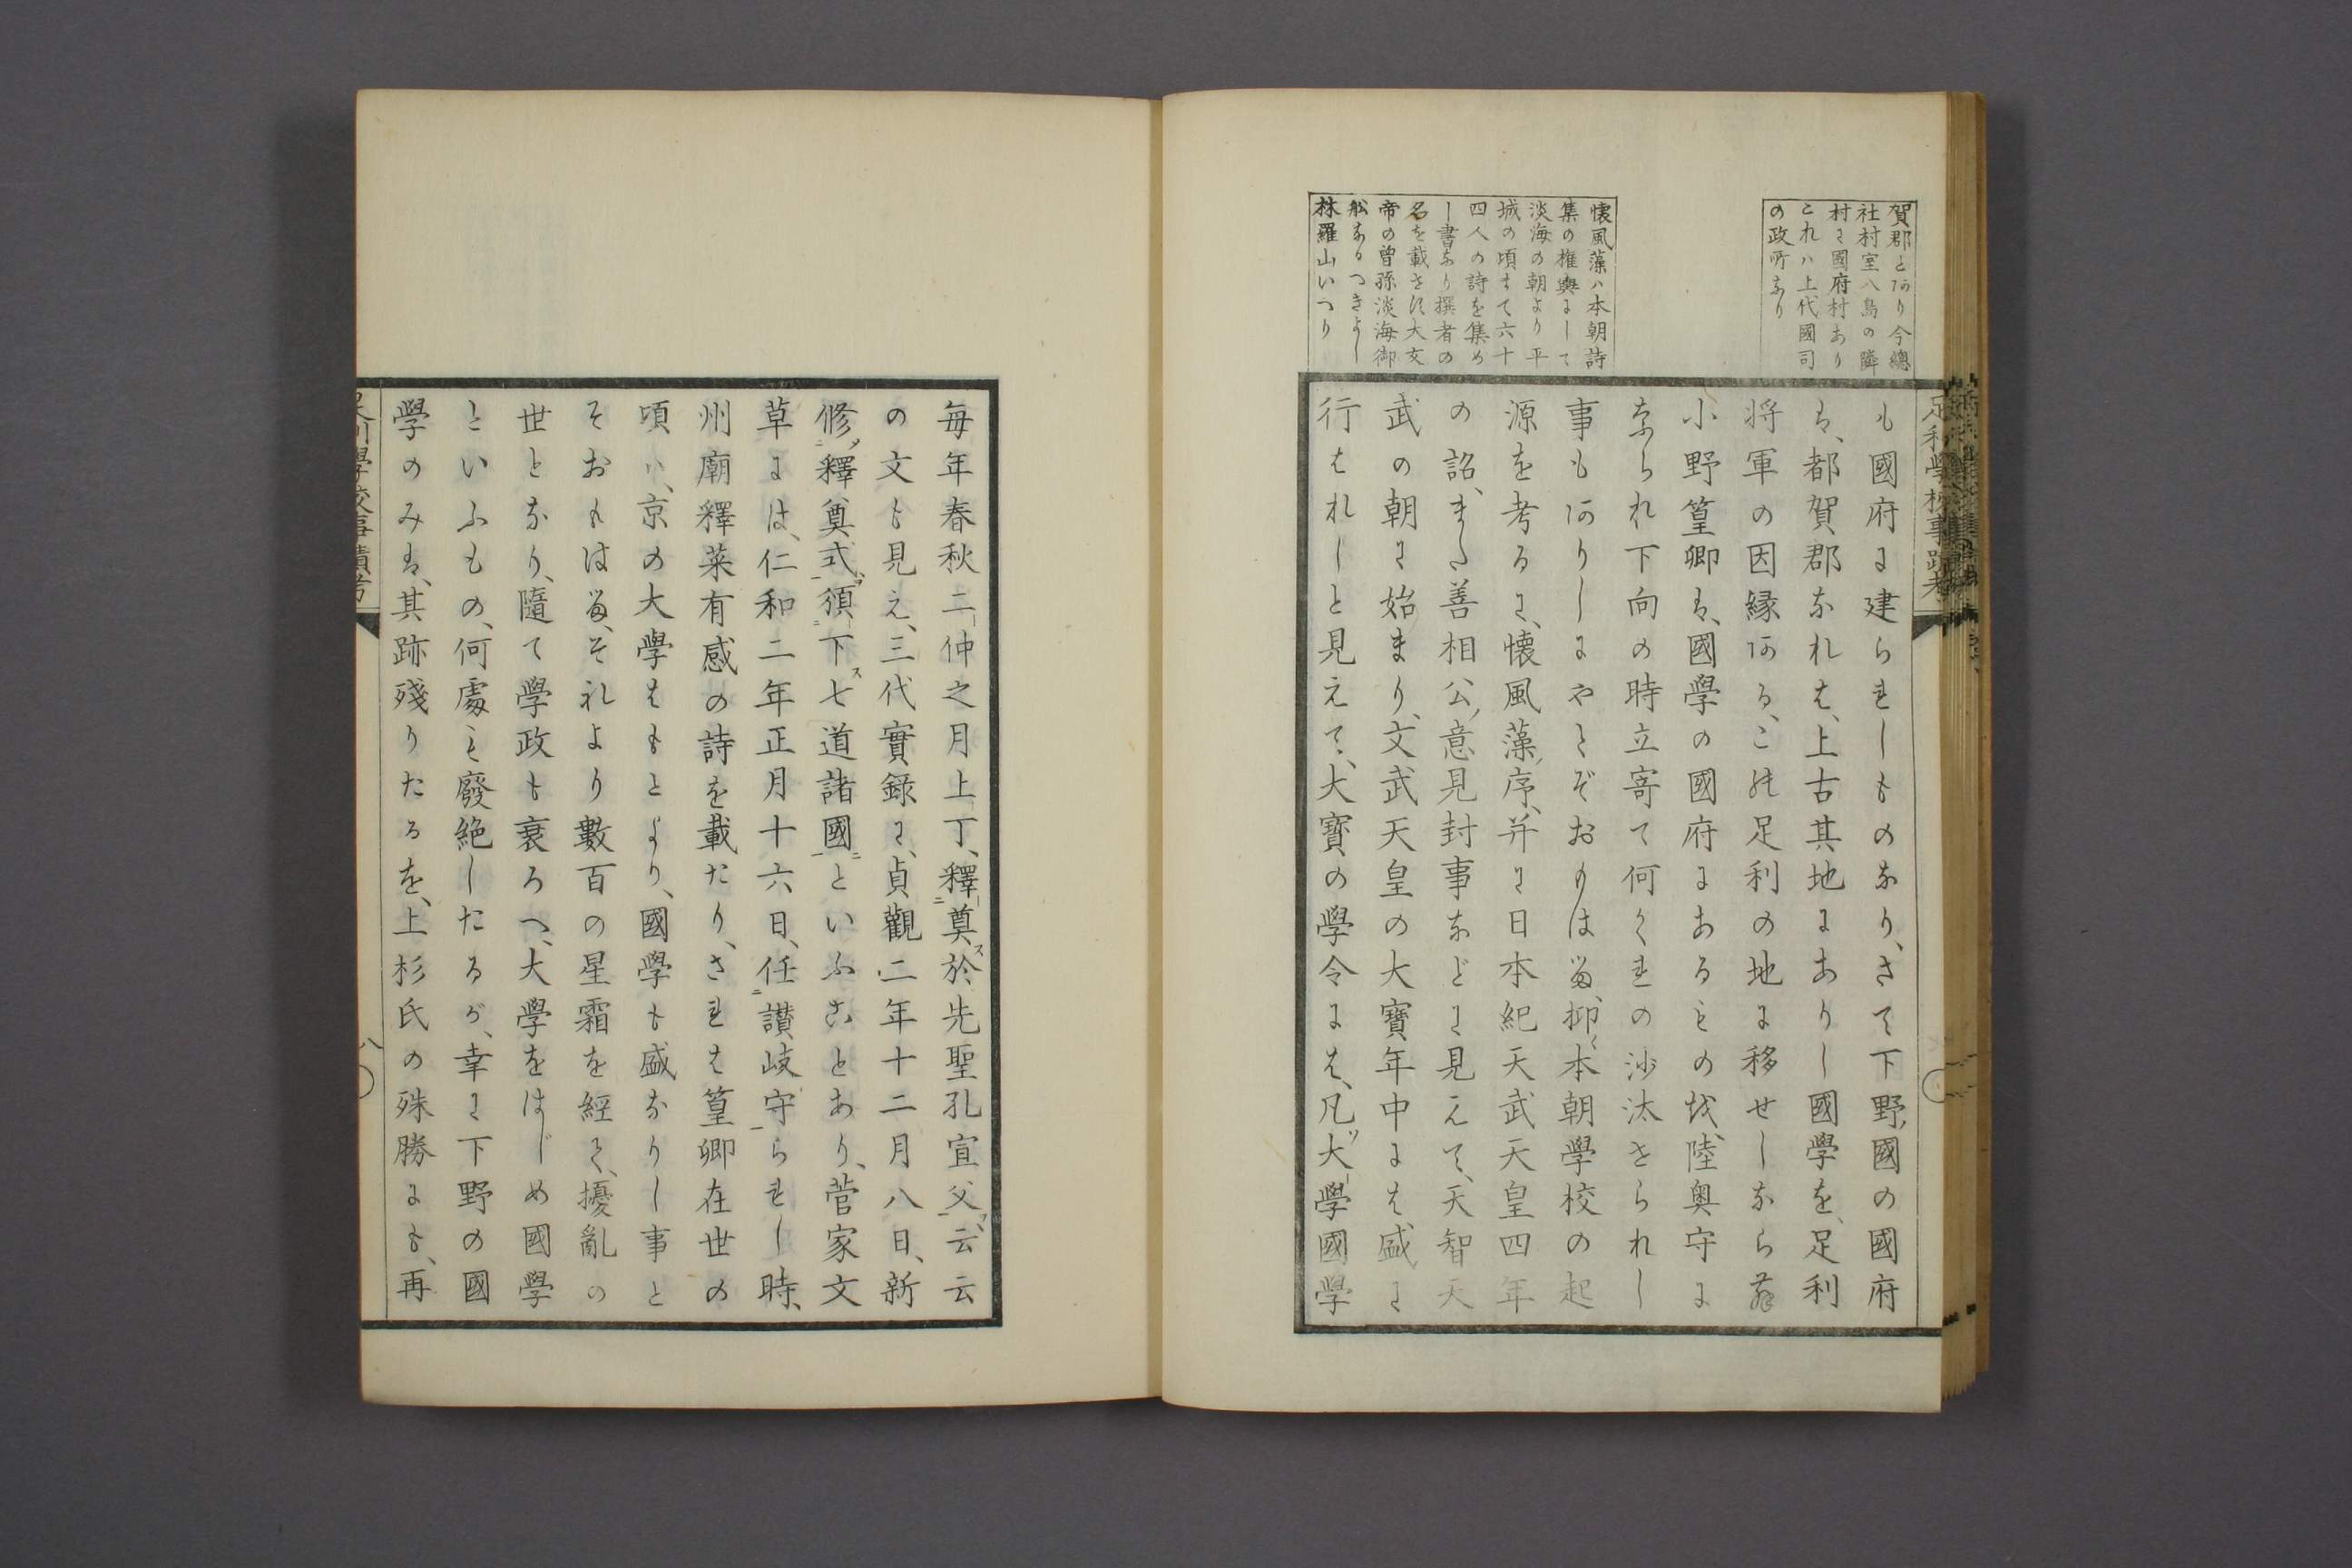 賀郡とあり今總
社村室八島の隣
村に國府村あり
これハ上代國司
の政所なり
懐風藻ハ本朝詩
集の権輿にして
淡海の朝より平
城の頃まて六十
四人の詩を集め
し書なり撰者の
名を載さす大友
帝の曽孫淡海御
舩なるへきよし
林羅山いへり
も國府に建られしものなり、さて下野國の國府
は、都賀郡なれは、上古其地にありし國學を、足利
将軍の因縁ある、この足利の地に移せしならむ
小野篁卿は、國學の國府にあるものは、陸奥守に
なられ下向の時立寄て何くれの沙汰せられし
事もありしにやとぞおもはる、抑〻本朝學校の起
源を考るに、懐風藻ノ序、并に日本紀天武天皇四年
の詔、また善相公ノ意見封事などに見えて、天智天
武の朝に始まり、文武天皇の大寶年中には盛に
行はれしと見えて、大寶の學令には、凡ソ大學國學
足利學校事蹟考
毎年春秋二仲之月上丁、釋奠ス於先聖孔宣父ヲ、云云
の文も見え、三代實録に、貞觀二年十二月八日、新
修ノ釋奠式ヲ頒下ス七道諸國ニといふことあり、菅家文
草には、仁和二年正月十六日、任讃岐守られし時、
州廟釋菜有感の詩を載たり、されは篁卿在世の
頃ハ、京の大學はもとより、國學も盛なりし事と
そおもはる、それより數百の星霜を經て、擾亂の
世となり、隨て學政も衰ろへ、大學をはじめ國學
といふもの、何處も廢絶したるが、幸に下野の國
學のみは、其跡殘りたるを、上杉氏の殊勝にも、再
足利學校事蹟考
八